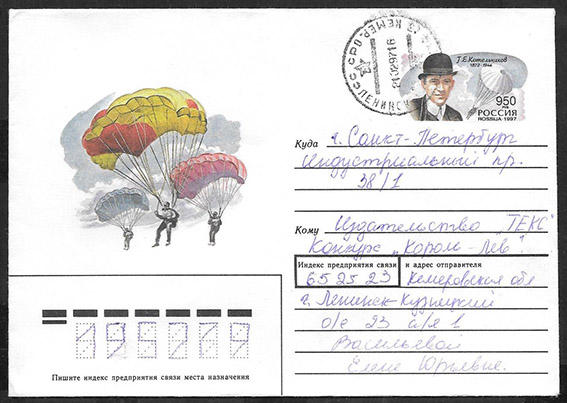 СССР КЕМЕР.О
21.12.97 16
ЛЕНИНСК
Г.Е.Котельников
1872-1944
950
РОССИЯ
ROSSIJA 1997
Куда г. Санкт-Петербург
Индустриальный пр.
38/1
Кому Издательство "ТЕКС"
Конкурс "Король-Лев".
Индекс предприятия связи и адрес отправителя
652523 Кемеровская обл
г. Ленинск-Кузнецкий
о/с 23 а/я 1
Васильевой
Елене Юрьевне.
195279
Пишите индекс предприятия связи места назначения